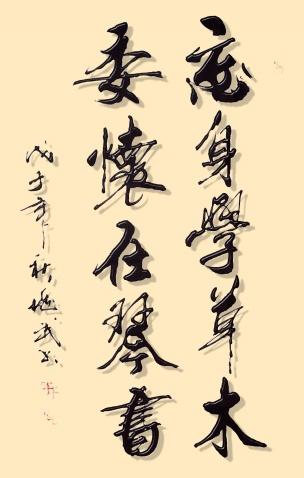 身學草木
委懷任琴書
戊子年秋